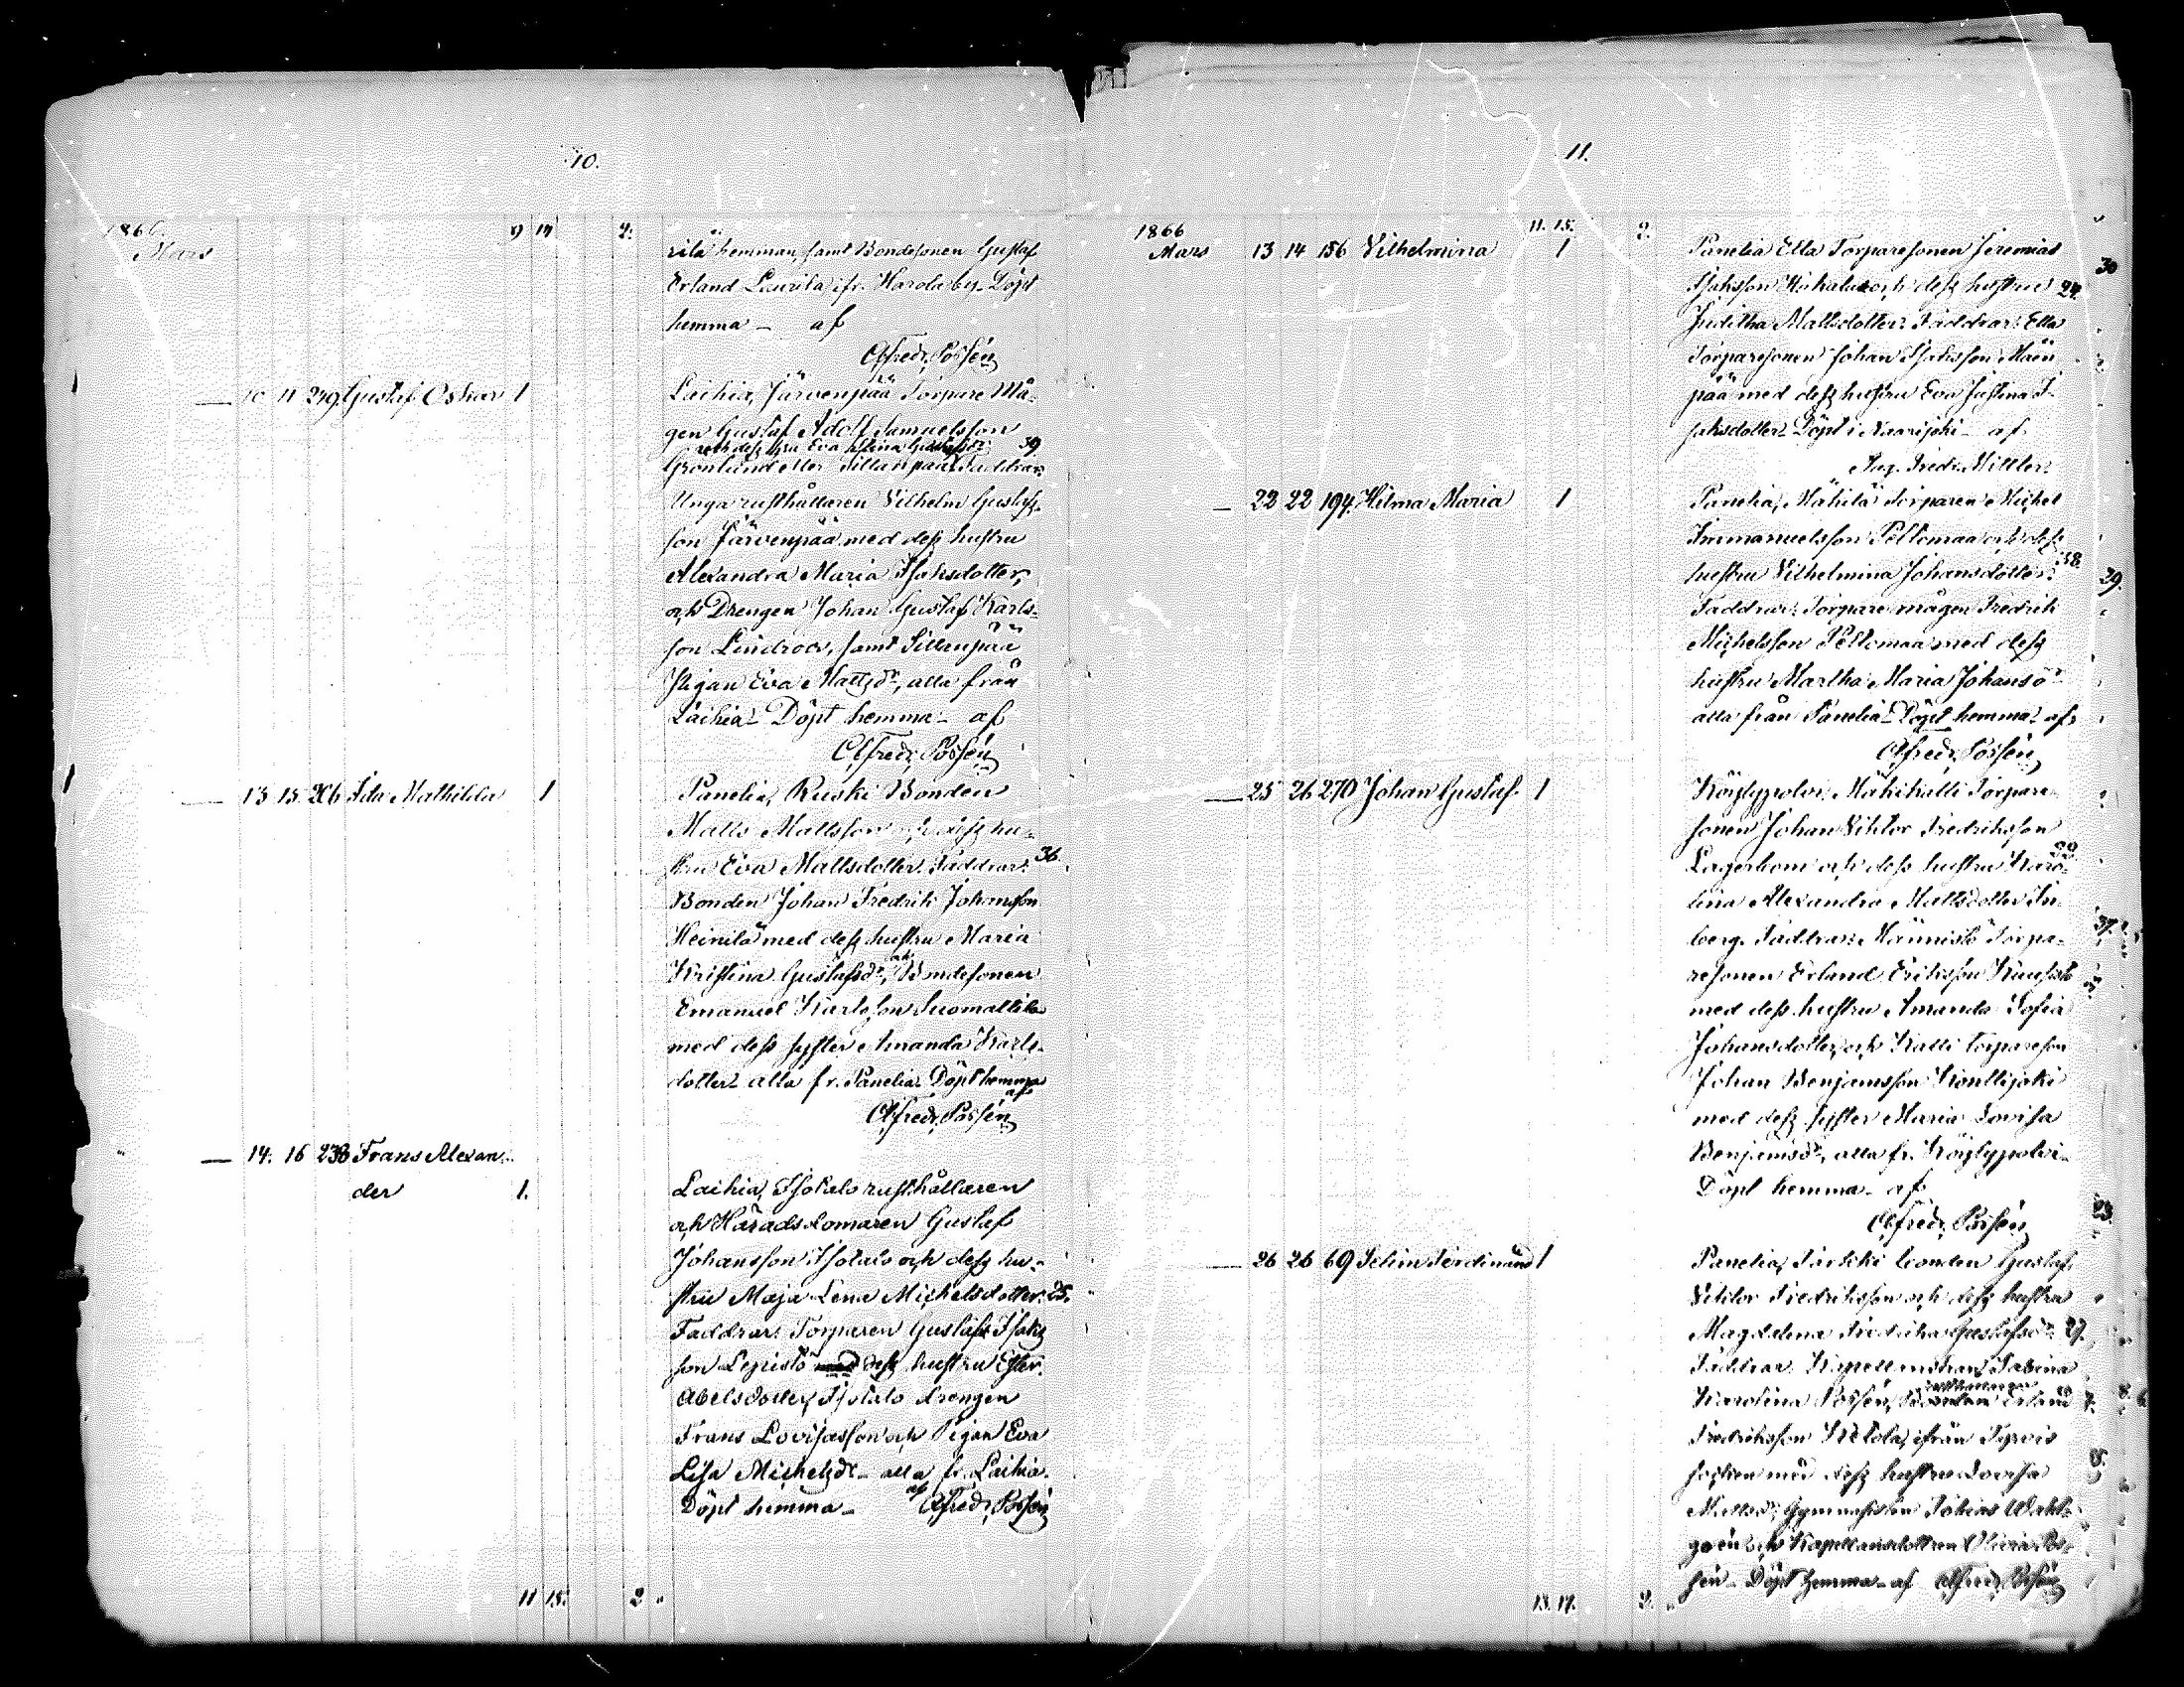 10.
1866
Mars
9 14 2.
rilä hemman, samt Bondesonen Gustaf
Erland Laurila, ifr. Harola by. Döpt
hemma _ af
Alfredr. Possén
10 11 249 Gustaf Oskar 1
Laihia, Järvenpää Torpare Må-
gen Gustaf Adolf Samuelsson
och dess hru Eva Stina 39
Grönlund eller Sillanpää. Faddrar:
Unga rusthållaren Vilhelm Gustafs-
son Järvenpää med dess hustru
Alexandra Maria Isaksdotter,
och Drengen Johan Gustaf Karls-
son Lindroos, samt Sillanpää
Pigan Eva Mattsdr, alla från
Laihia _ Döpt hemma _ af
Alfredr. Possén
13 15 206 Ida Mathilda 1
Panelia, Ruski Bonden
Matts Mattsson och dess hu-
stru Eva Mattsdotter. Faddrar: 36.
Bonden Johan Fredrik Johansson
Heinilä med dess hustru Maria
Kristina Gustafsdr, och Bondesonen
Emanuel Karlsson Suomattila
med dess syster Amanda Karls-
dotter _ alla fr. Panelia. Döpt hemma
af
Alfredr. Possén
14. 16 238 Frans Alexan-
der 1.
Laihia, Isotalo rusthållaren
och Häradsdomaren Gustaf
Johansson Isotalo och dess hu-
stru Maja Lena Michelsdotter. 25.
Faddrar: Torparen Gustaf Isaks
son Lepistö dess hustru Ester
Abelsdotter, Isotalo drengen
Frans Lovisasson och Pigan Eva
Lisa Michelsdr _ alla fr. Laihia.
Döpt hemma _ af Alfredr. Possén
11 15. 2 "
11.
1866
11. 15. 2.
Mars 13 14 156 Vilhelmina 1
Panelia Ella Torparesonen Jeremias
Isaksson och dess hustru 24.
Juditha Mattsdotter. Faddrar: Ella
Torparesonen Johan Isaksson Mäen
pää med dess hustru Eva Justina I-
saksdotter _ Döpt i Naarijoki _ af
Aug. Fredr. Mittler.
22 22 194. Hilma Maria 1
Panelia, Mähilä Torparen Michel
Immanuelsson Peltomaa och dess
hustru Vilhelmina Johansdotter. 38.
Faddrar: Torpare mågen Fredrik
Michelsson Peltomaa med dess
hustru Martha Maria Johansdr
alla från Panelia _ Döpt hemma _ af
Alfredr. Possén
25 26 270 Johan Gustaf. 1
Köylypolvi, Mäkikalli Torpare-
sonen Johan Viktor Fredriksson
Lagerbom och dess hustru Karo-
lina Alexandra Mattsdotter
berg. Faddrar: Männistö Torpa-
resonen Erland Eriksson
med dess hustru Amanda Sofia
Johansdotter, och Kalli torpareson
Johan Benjamsson Konttijoki
med dess syster Maria Lovisa
Benjamsdr, alla fr. Köylypolvi _
Döpt hemma _ af
Alfredr. Possén
26 26 69 Selim Ferdinand 1
Panelia, bonden Gustaf
Viktor Fredriksson och dess hustru
Magdalena Fredrika Gustafsdr 27.
Faddrar: Kapellanskan Sabina
Karolina Possén, rusthållaren Erland
Fredriksson Ketola, ifrån Tyrvis
socken med dess hustru Lovisa
Mattsdr, Gymnasisten Johans Wahl-
 och Kapellansdottren Olivia Pos-
sén _ Döpt hemma _ af Alfredr. Possén
13. 17. 2. "
30
39.
37.
23.